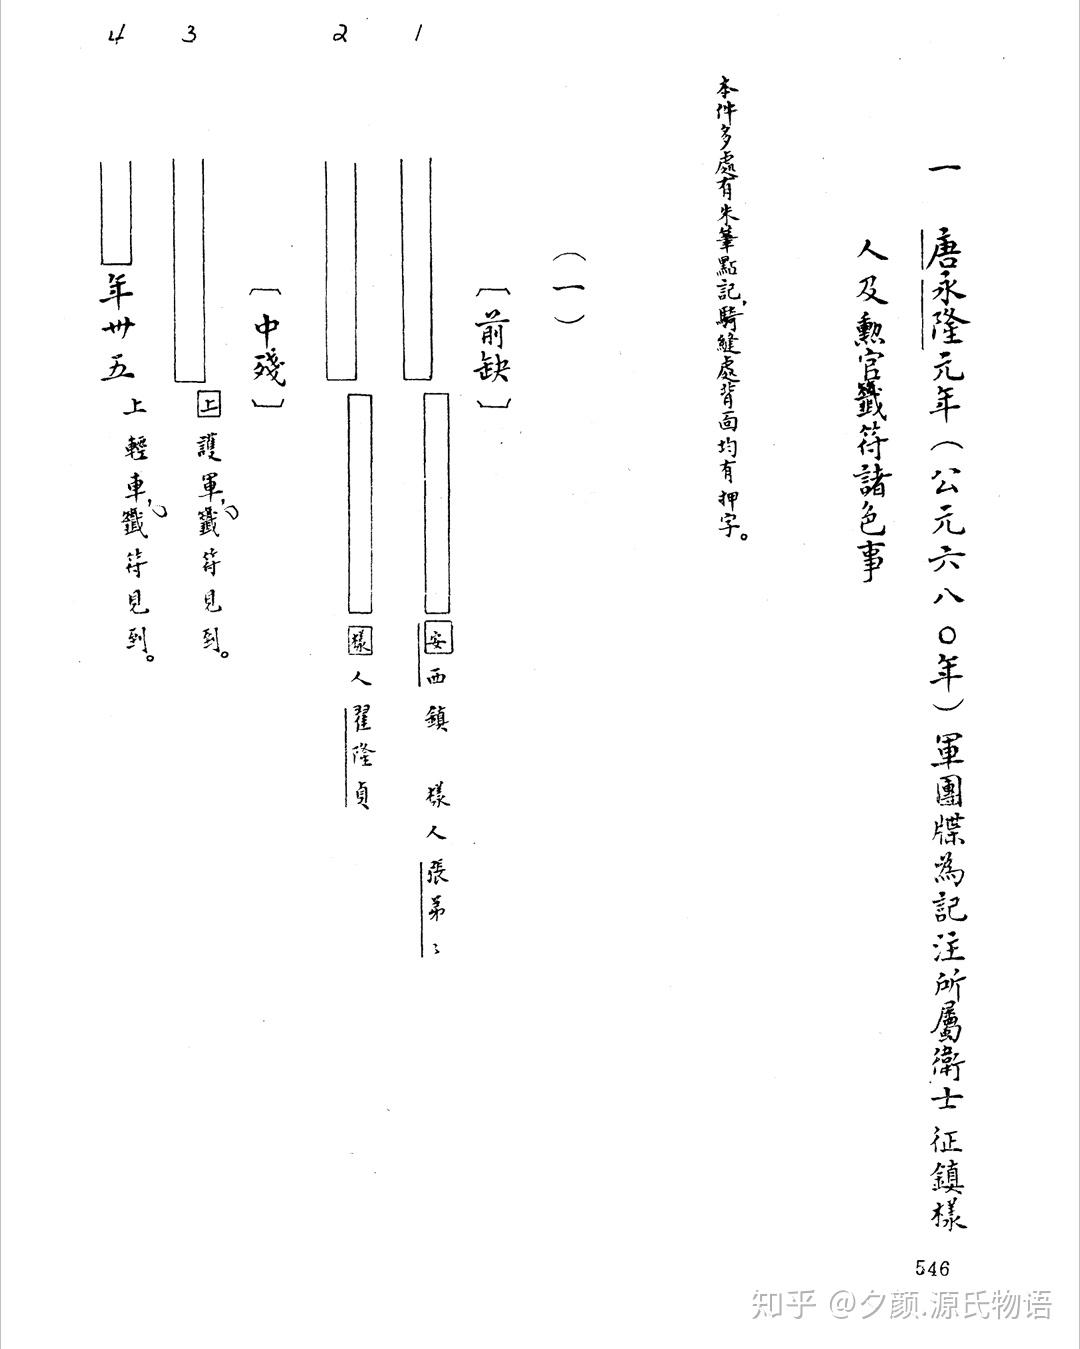 一 唐永隆元年(公元六八〇年)軍團牒為記注所屬衛士征鎮樣
人及勲官籤符諸色事
本件多處有朱筆點記,騎縫處背面均有押字。
(一)
〔前缺〕
1 安西鎮 樣人張弟〻
2 樣人翟隆貞
〔中殘〕
3 上護軍,籤符見到。
4 年卅五 上輕車,籤符見到。
546
知乎 @夕颜.源氏物语